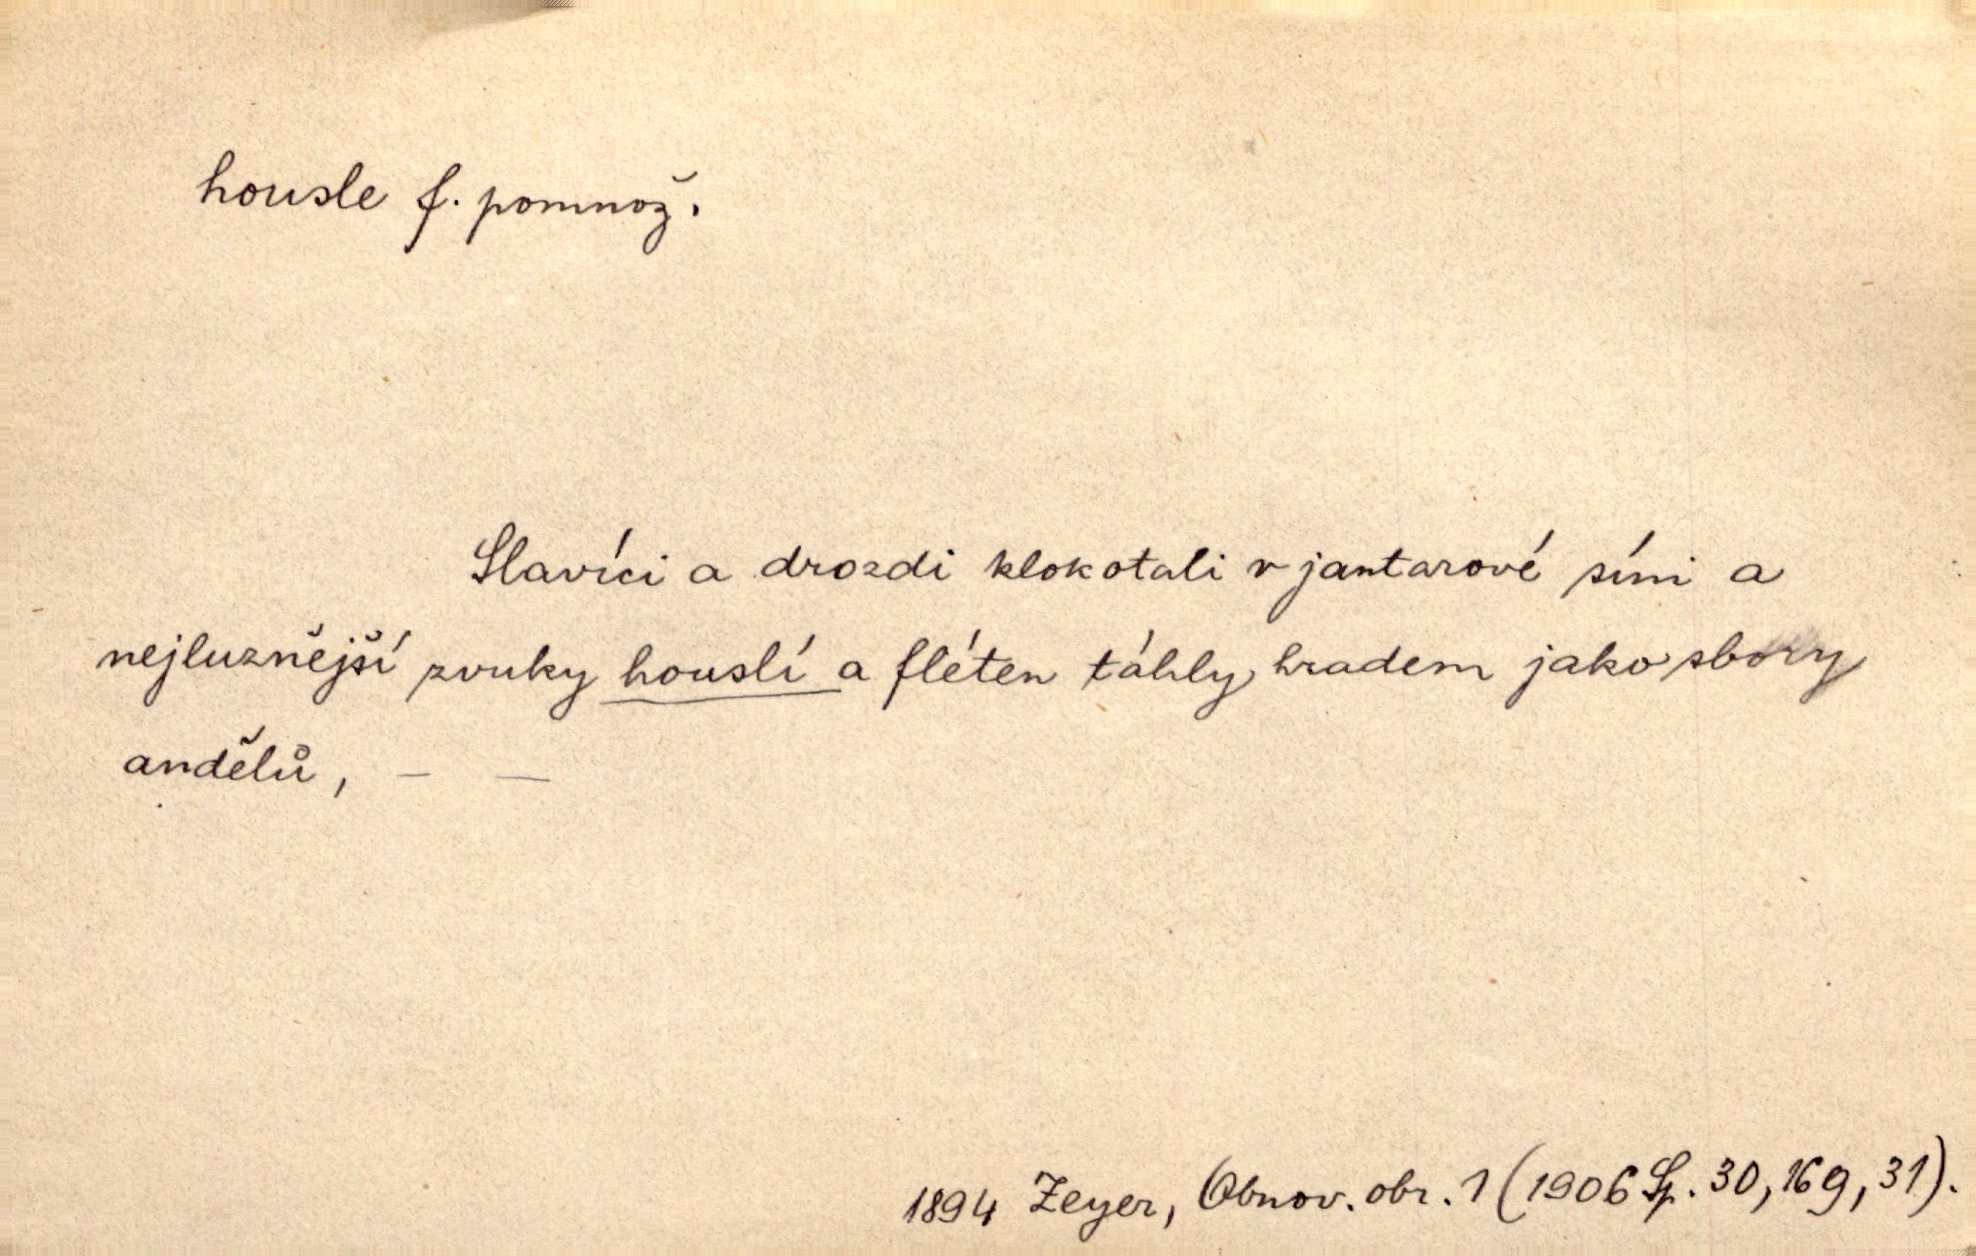 housle f. pomnož.
Slavíci a drozdi klokotali v jantarové síni a
nejluznější zvuky houslí a fléten táhly hradem jako sbory
andělů, — —
1894 Zeyer, Obnov. obr. 1 (1906 Sp. 30, 169, 31).